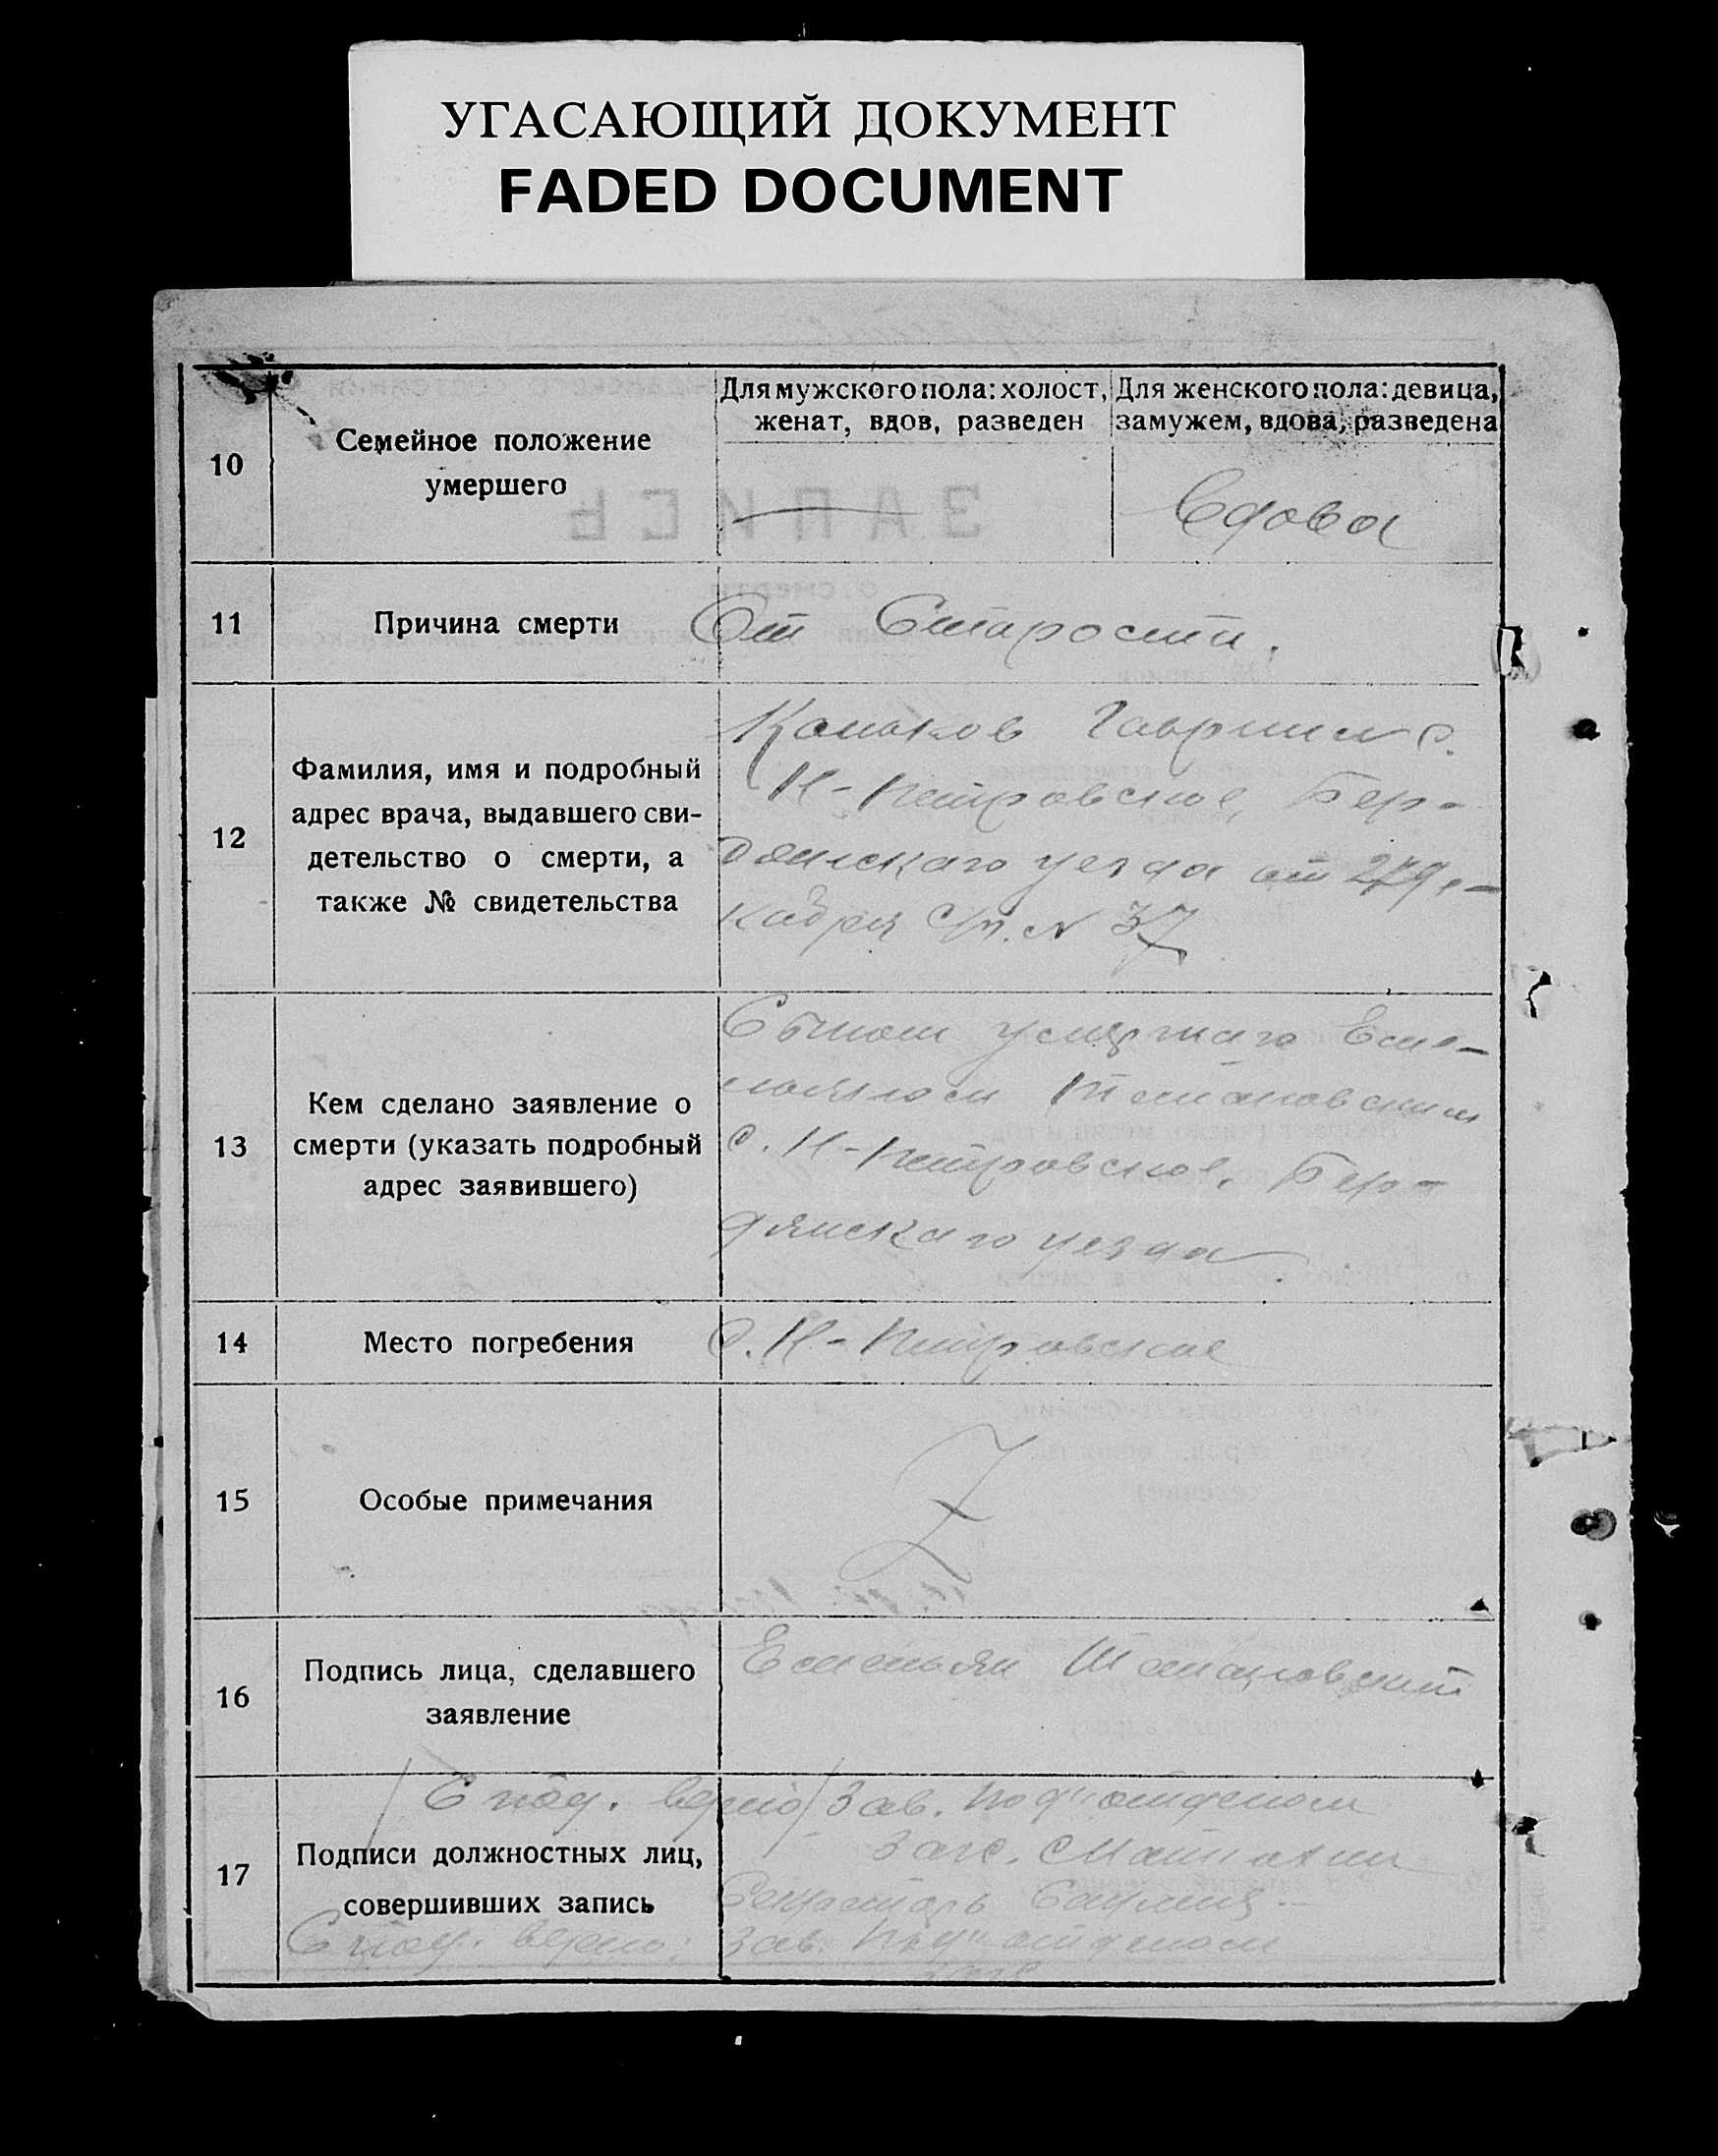 УГАСАЮЩИЙ ДОКУМЕНТ
FADED DOCUMENT
10
Семейное положение
умершего
Для мужского пола: холост,
женат, вдов, разведен
Для женского пола: девица,
замужем, вдова, разведена
Вдова
11
Причина смерти
От Старости.
12
Фамилия, имя и подробный
адрес врача, выдавшего сви-
детельство о смерти, а
также № свидетельства
Гавриил с.
Н-Петровское, Бер-
дянскаго уезда от 27 де-
кабря с/г. № 37
13
Кем сделано заявление о
смерти (указать подробный
адрес заявившего)
Сыном умершаго Еме-
льяном
с. Н-Петровское, Бер-
дянскаго уезда
14
Место погребения
с. Н-Петровское
15
Особые примечания
Z
16
Подпись лица, сделавшего
заявление
Емельян
17
Подписи должностных лиц,
совершивших запись
С под. верно / Зав. Под'отделом
Загс.
Секретарь
С под. верно: Зав. Под'отделом